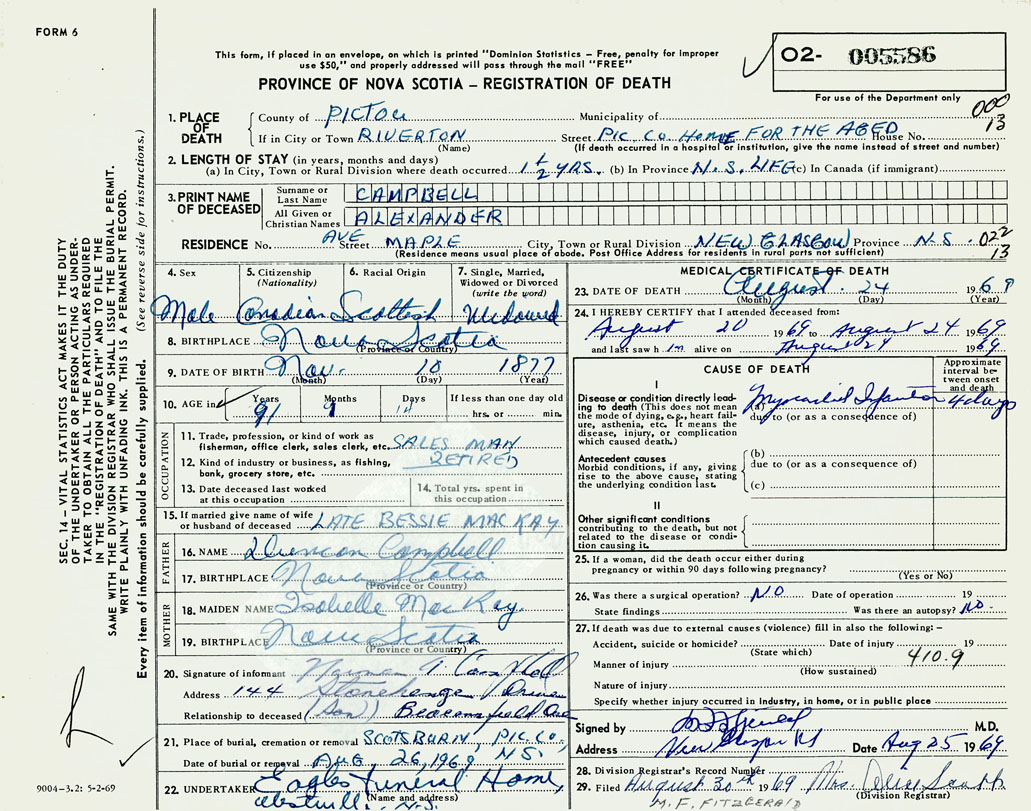 FORM 6
This form, if placed in an envelope, on which is printed "Dominion Statistics – Free, penalty for improper
use $50," and properly addressed will pass through the mail "FREE"
PROVINCE OF NOVA SCOTIA – REGISTRATION OF DEATH
O2- 005586
For use of the Department only
000
13
1. PLACE OF DEATH
County of PICTOU Municipality of
If in City or Town RIVERTON Street PIC. CO. HOME FOR THE AGED House No.
(Name) (If death occurred in a hospital or institution, give the name instead of street and number)
2. LENGTH OF STAY (in years, months and days)
(a) In City, Town or Rural Division where death occurred 1 1/2 YRS. (b) In Province N.S. LIFE (c) In Canada (if immigrant)
3. PRINT NAME OF DECEASED
Surname or Last Name CAMPBELL
All Given or Christian Names ALEXANDER
RESIDENCE No. AVE Street MAPLE City, Town or Rural Division NEW GLASGOW Province N.S. 022
13
(Residence means usual place of abode. Post Office Address for residents in rural parts not sufficient)
4. Sex
Male
5. Citizenship
(Nationality)
Canadian
6. Racial Origin
Scottish
7. Single, Married,
Widowed or Divorced
(write the word)
Widowed
8. BIRTHPLACE Nova Scotia
(Province or Country)
9. DATE OF BIRTH Nov. 10 1877
(Month) (Day) (Year)
10. AGE in Years Months Days If less than one day old
91 9 14 hrs. or min.
OCCUPATION
11. Trade, profession, or kind of work as
fisherman, office clerk, sales clerk, etc. SALES MAN
12. Kind of industry or business, as fishing, RETIRED
bank, grocery store, etc.
13. Date deceased last worked
at this occupation
14. Total yrs. spent in
this occupation
15. If married give name of wife
or husband of deceased LATE BESSIE MACKAY
FATHER
16. NAME Duncan Campbell
17. BIRTHPLACE Nova Scotia
(Province or Country)
MOTHER
18. MAIDEN NAME Isabelle MacKay.
19. BIRTHPLACE Nova Scotia
(Province or Country)
20. Signature of informant
Address 144 Stonehenge Drive
Relationship to deceased (Son) Beaconsfield Que
21. Place of burial, cremation or removal SCOTSBURN, PIC. CO., N.S.
Date of burial or removal AUG 26, 1969
22. UNDERTAKER Eagles Funeral Home,
(Name and address)
N.S.
MEDICAL CERTIFICATE OF DEATH
23. DATE OF DEATH August 24 1969
(Month) (Day) (Year)
24. I HEREBY CERTIFY that I attended deceased from:
August 20 1969 to August 24 1969
and last saw him alive on August 24 1969
CAUSE OF DEATH
Approximate
interval be-
tween onset
and death
I
Disease or condition directly lead-
ing to death (This does not mean
the mode of dying, e.g., heart fail-
ure, asthenia, etc. It means the
disease, injury, or complication
which caused death.)
(a) Myocardial Infarction 4 days
due to (or as a consequence of)
Antecedent causes
Morbid conditions, if any, giving
rise to the above cause, stating
the underlying condition last.
(b)
due to (or as a consequence of)
(c)
II
Other significant conditions
contributing to the death, but not
related to the disease or condi-
tion causing it.
25. If a woman, did the death occur either during
pregnancy or within 90 days following pregnancy?
(Yes or No)
26. Was there a surgical operation? NO Date of operation 19
State findings Was there an autopsy? No.
27. If death was due to external causes (violence) fill in also the following: –
Accident, suicide or homicide? Date of injury 19
(State which)
Manner of injury 410.9
(How sustained)
Nature of injury
Specify whether injury occurred in industry, in home, or in public place
Signed by M.D.
Address New Glasgow NS Date Aug 25 1969
28. Division Registrar's Record Number
29. Filed August 30th 1969 Mrs.
(Division Registrar)
M. F. FITZGERALD
SEC. 14 – VITAL STATISTICS ACT MAKES IT THE DUTY
OF THE UNDERTAKER OR PERSON ACTING AS UNDER-
TAKER TO OBTAIN ALL THE PARTICULARS REQUIRED
IN THE "REGISTRATION OF DEATH" AND TO FILE THE
SAME WITH THE DIVISION REGISTRAR WHO SHALL ISSUE THE BURIAL PERMIT.
WRITE PLAINLY WITH UNFADING INK. THIS IS A PERMANENT RECORD.
Every item of information should be carefully supplied. (See reverse side for instructions.)
9004–3.2: 5-2-69